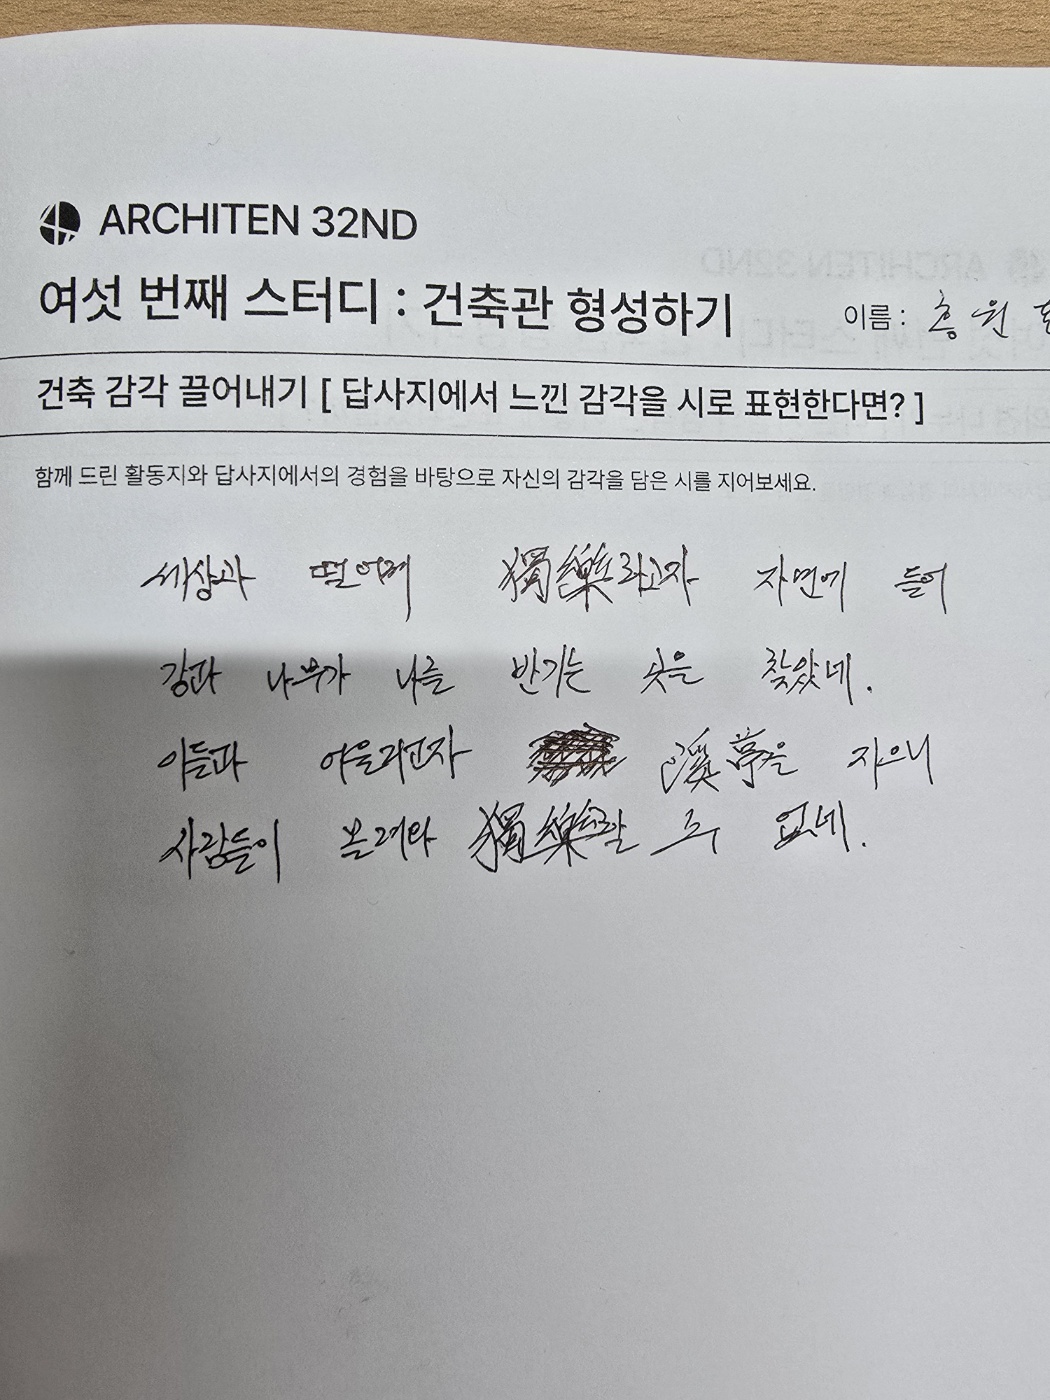 ARCHITEN 32ND
여섯 번째 스터디 : 건축관 형성하기
이름 : 홍 원
건축 감각 끌어내기 [ 답사지에서 느낀 감각을 시로 표현한다면? ]
함께 드린 활동지와 답사지에서의 경험을 바탕으로 자신의 감각을 담은 시를 지어보세요.
세상과 떨어져 獨樂하고자 자연에 들어
강과 나무가 나를 반기는 곳을 찾았네.
이들과 어울리고자 溪亭을 지으니
사람들이 몰려와 獨樂할 수 없네.